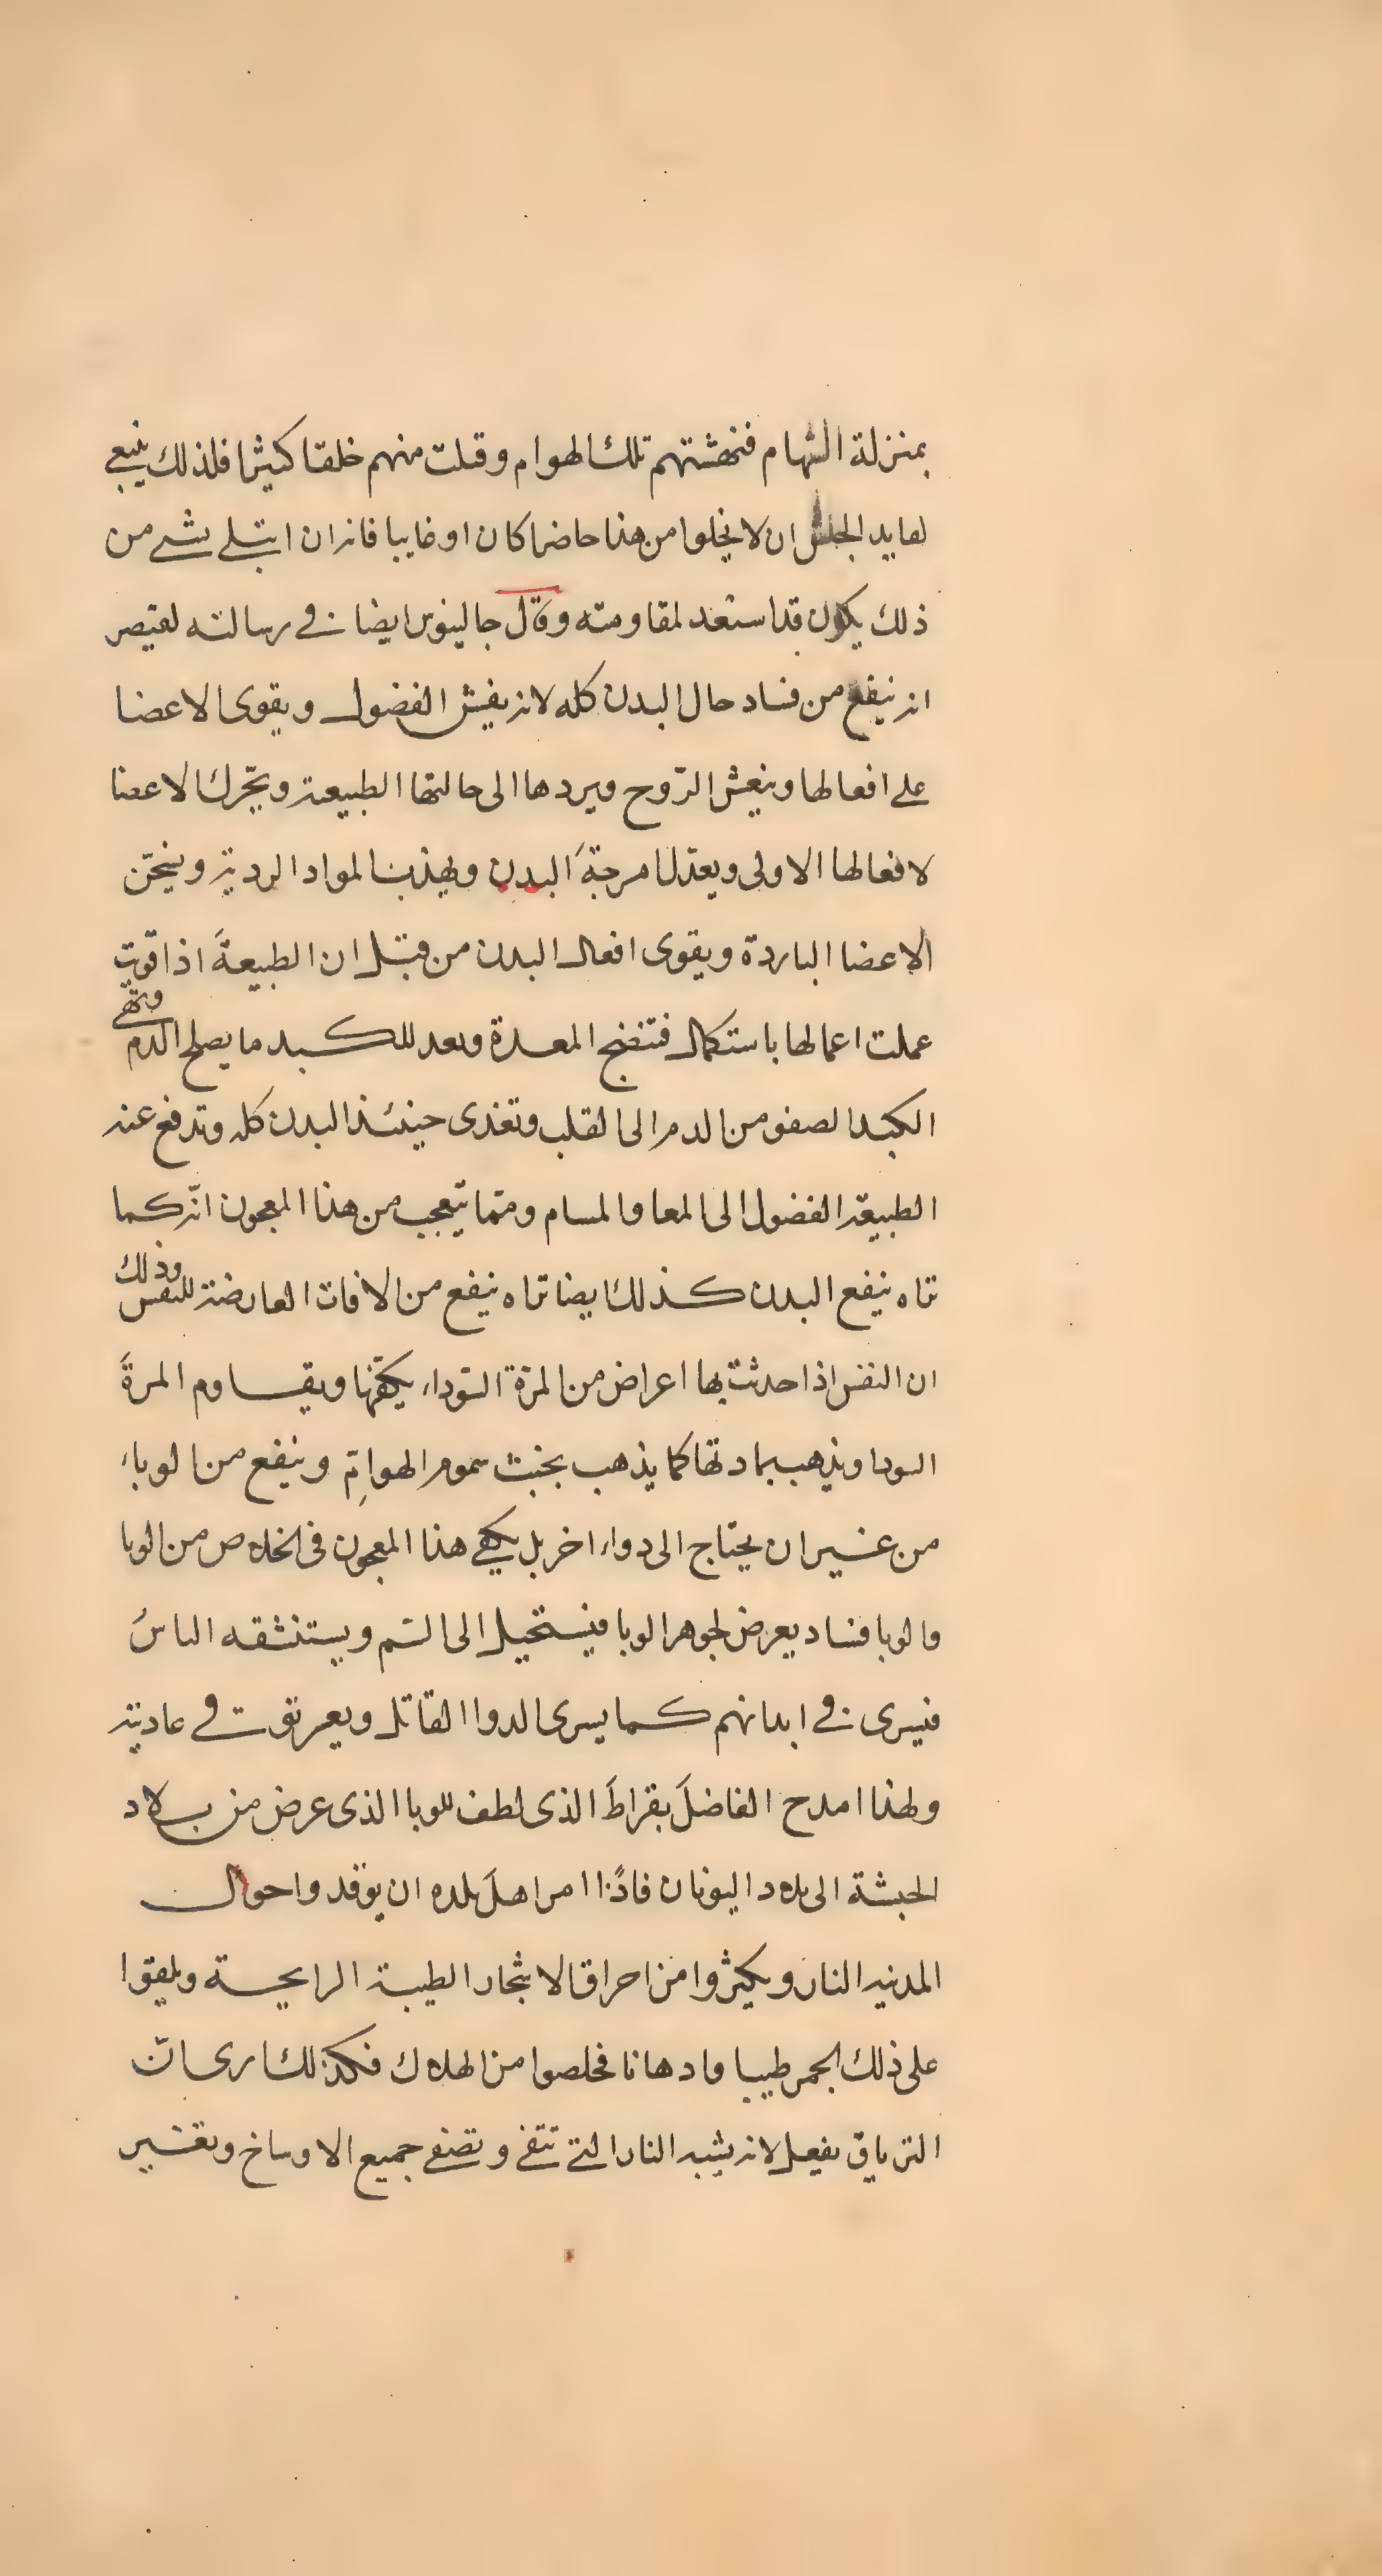 بمنزلة السهام فنهشتهم تلك الهوام وقتلت منهم خلقا كثيرا فلذلك ينبغي
لقايد الجيش ان لا يخلوا من هذا حاضرا كان او غايبا فانه ان ابتلي بشي من
ذلك يكون قد استعد لمقاومته وقال جالينوس ايضا في رسالته لقيصر
انه ينفع من فساد حال البدن كله لانه يفش الفضول ويقوى الاعضا
على افعالها وينعش الرّوح ويردها الى حالتها الطبيعة ويحّرك الاعضا
لافعالها الاولى ويعدّل امزجةَ البدن ويهذب المواد الردية ويسخّن
الاعضا الباردة ويقوى افعال البدن من قبل ان الطبيعةَ اذا قوت
عملت اعمالها باستكمال فتنضج المعدة وبعد للكبد ما يصلح الدم وتنقي
الكبد الصفو من الدم الى القلب وتغذى حينئذ البدن كله وتدفع عنه
الطبيعة الفضول الى المعا والمسام وممّا يتعجب من هذا المعجون انّه كما
تراه ينفع البدن كذلك ايضا تراه ينفع من الافات العارضة للنفس وذلك
ان النفس اذا حدثت بها اعراض من المرّة السّوداء يكفّها ويقاوم المرةَ
السودا ويذهب بمادتها كما يذهب بخبث سموم الهوامِّ وينفع من الوباء
من غير ان يحتاج الى دواء اخر بل يكفي هذا المعجون فى الخلاص من الوبا
والوبا فساد يعرض لجوهر الوبا فيستحيل الى السّم ويستنشقه الناسُ
فيسرى في ابدانهم كما يسرى الدوا القاتل ويعير توت في عاديته
ولهذا امدح الفاضلَ بقراطَ الذى لطف للوبا الذى عرض من بلاد
الحبشة الى بلاد اليونان فاذًا امر اهلَ بلده ان يوقدوا حوال
المدنيه النار ويكثروا من احراق الاشجار الطيبة الرايحة ويلقوا
على ذلك الجمر طيبا وادهانا فخلصوا من الهلاك فكذلك ارى انّ
الترياق يفعل لانه يشبه النار التي تنقي وتصفي جميع الاوساخ وتغير